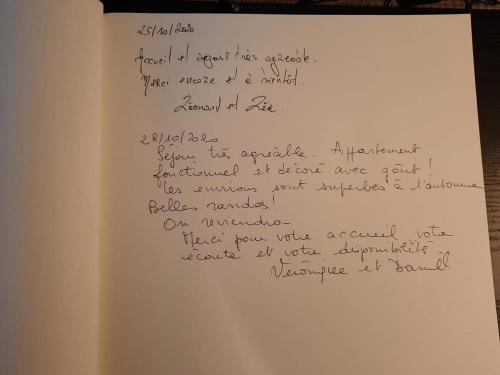 25/10/2020
Accueil et séjour très agréable.
Merci encore et à bientôt.
Léonard et Zée.
28/10/2020
Séjour très agréable. Appartement
fonctionnel et décoré avec goût!
Les environs sont superbes à l'automne
Belles randos!
On reviendra
Merci pour votre accueil votre
écoute et votre disponibilité..
Véronique et Daniel